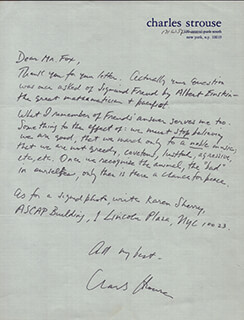 charles strouse
central park south
new york, n.y. 10019
Dear Mr. Fox,
Thank you for your letter. Actually your question
was once asked of Sigmund Freud by Albert Einstein -
the great mathematician & pacifist.
What I remember of Freud's answer serves me too.
Something to the effect of: we must stop believing
we are good, that we march only to a noble music,
that we are not greedy, covetous, lustful, aggressive,
etc, etc. Once we recognize the animal, the "bad"
in ourselves, only then is there a chance for peace.
As for a signed photo, write Karen Sherry,
ASCAP Building, 1 Lincoln Plaza, NYC 10023.
All my best.
Charles Strouse